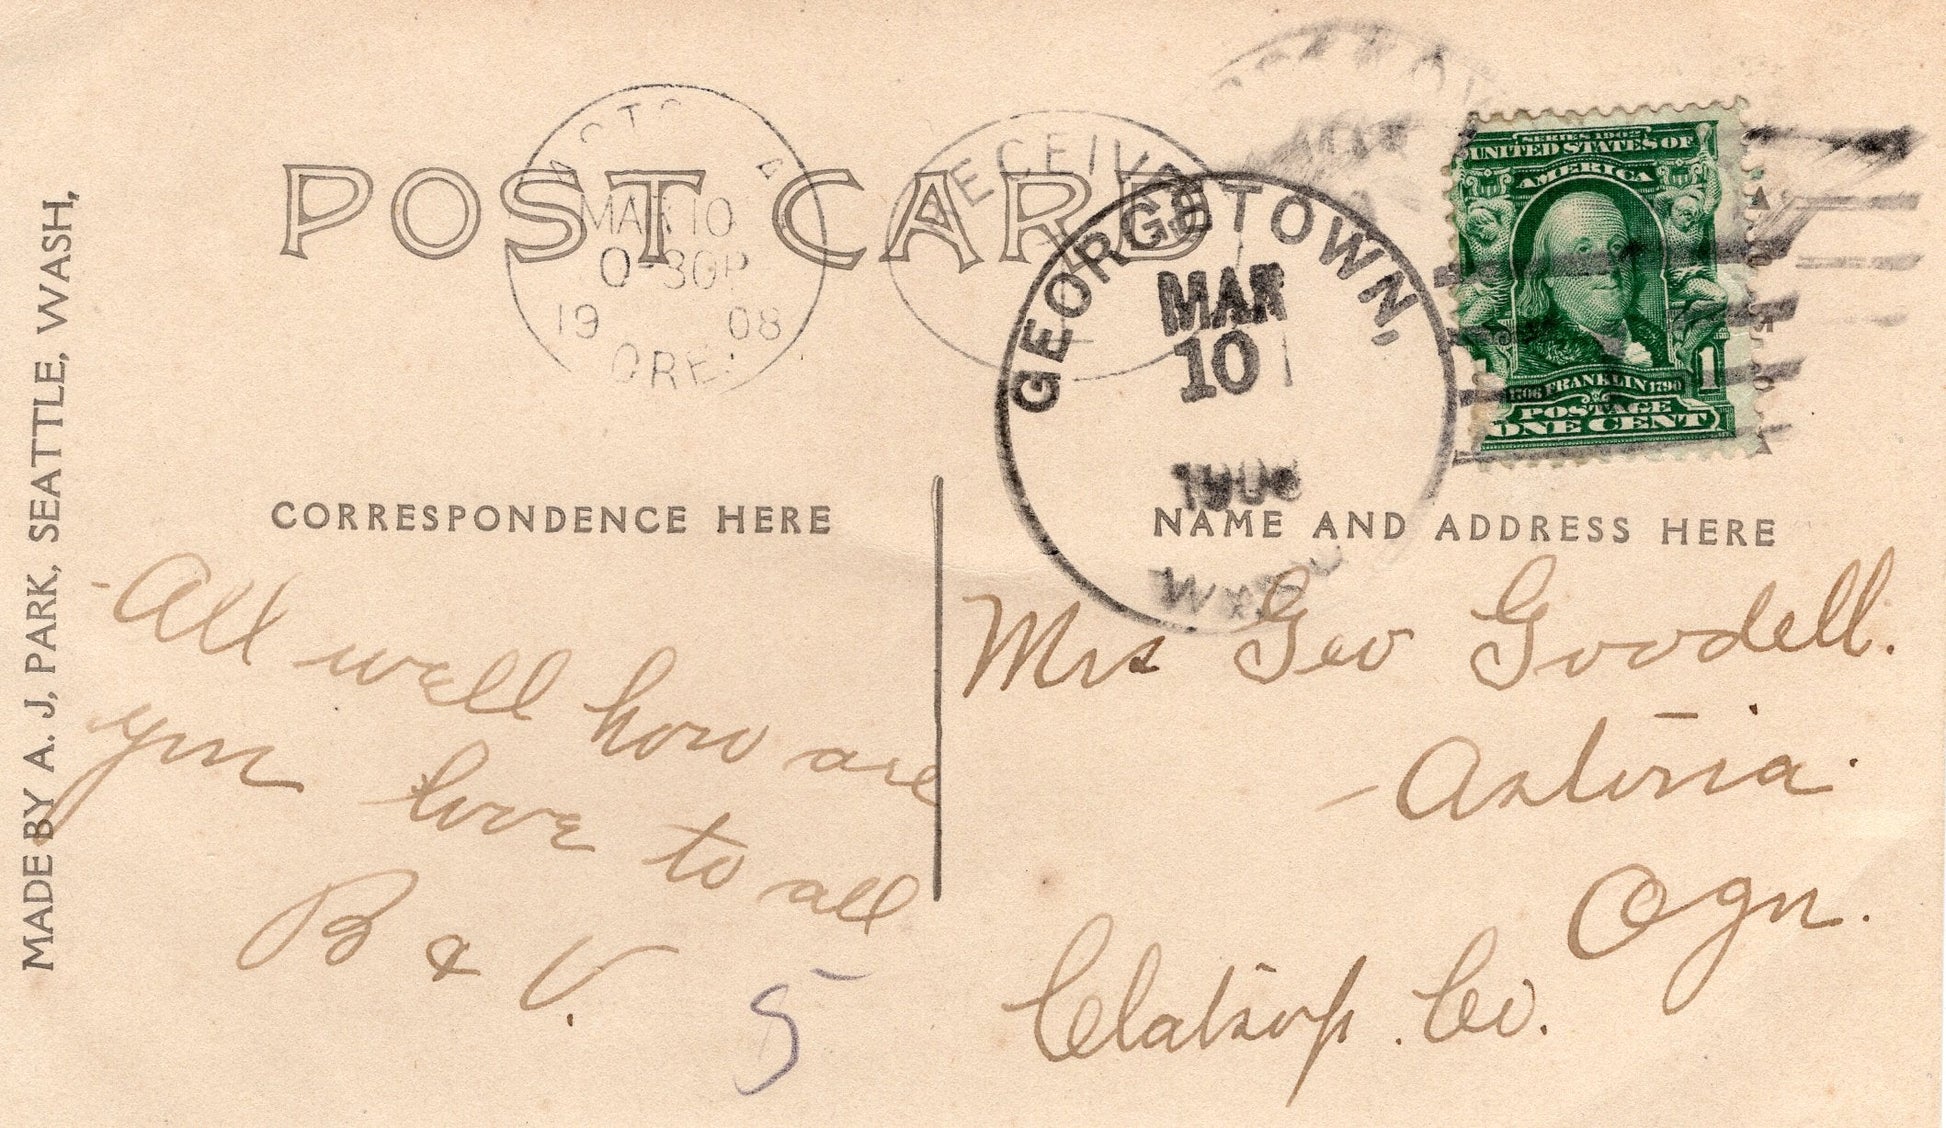 POST CARD
MADE BY A. J, PARK, SEATTLE, WASH,
MAR 10
19 08
ORE.
RECEIVED
GEORGETOWN,
MAR
10
WASH
SERIES 1902
UNITED STATES OF
AMERICA
1706 FRANKLIN 1790
1
POSTAGE
ONE CENT
CORRESPONDENCE HERE
NAME AND ADDRESS HERE
All well how are
you love to all
B & V.
5
Mrs Geo Goodell.
Astoria.
Ogn.
Clatsop. Co.